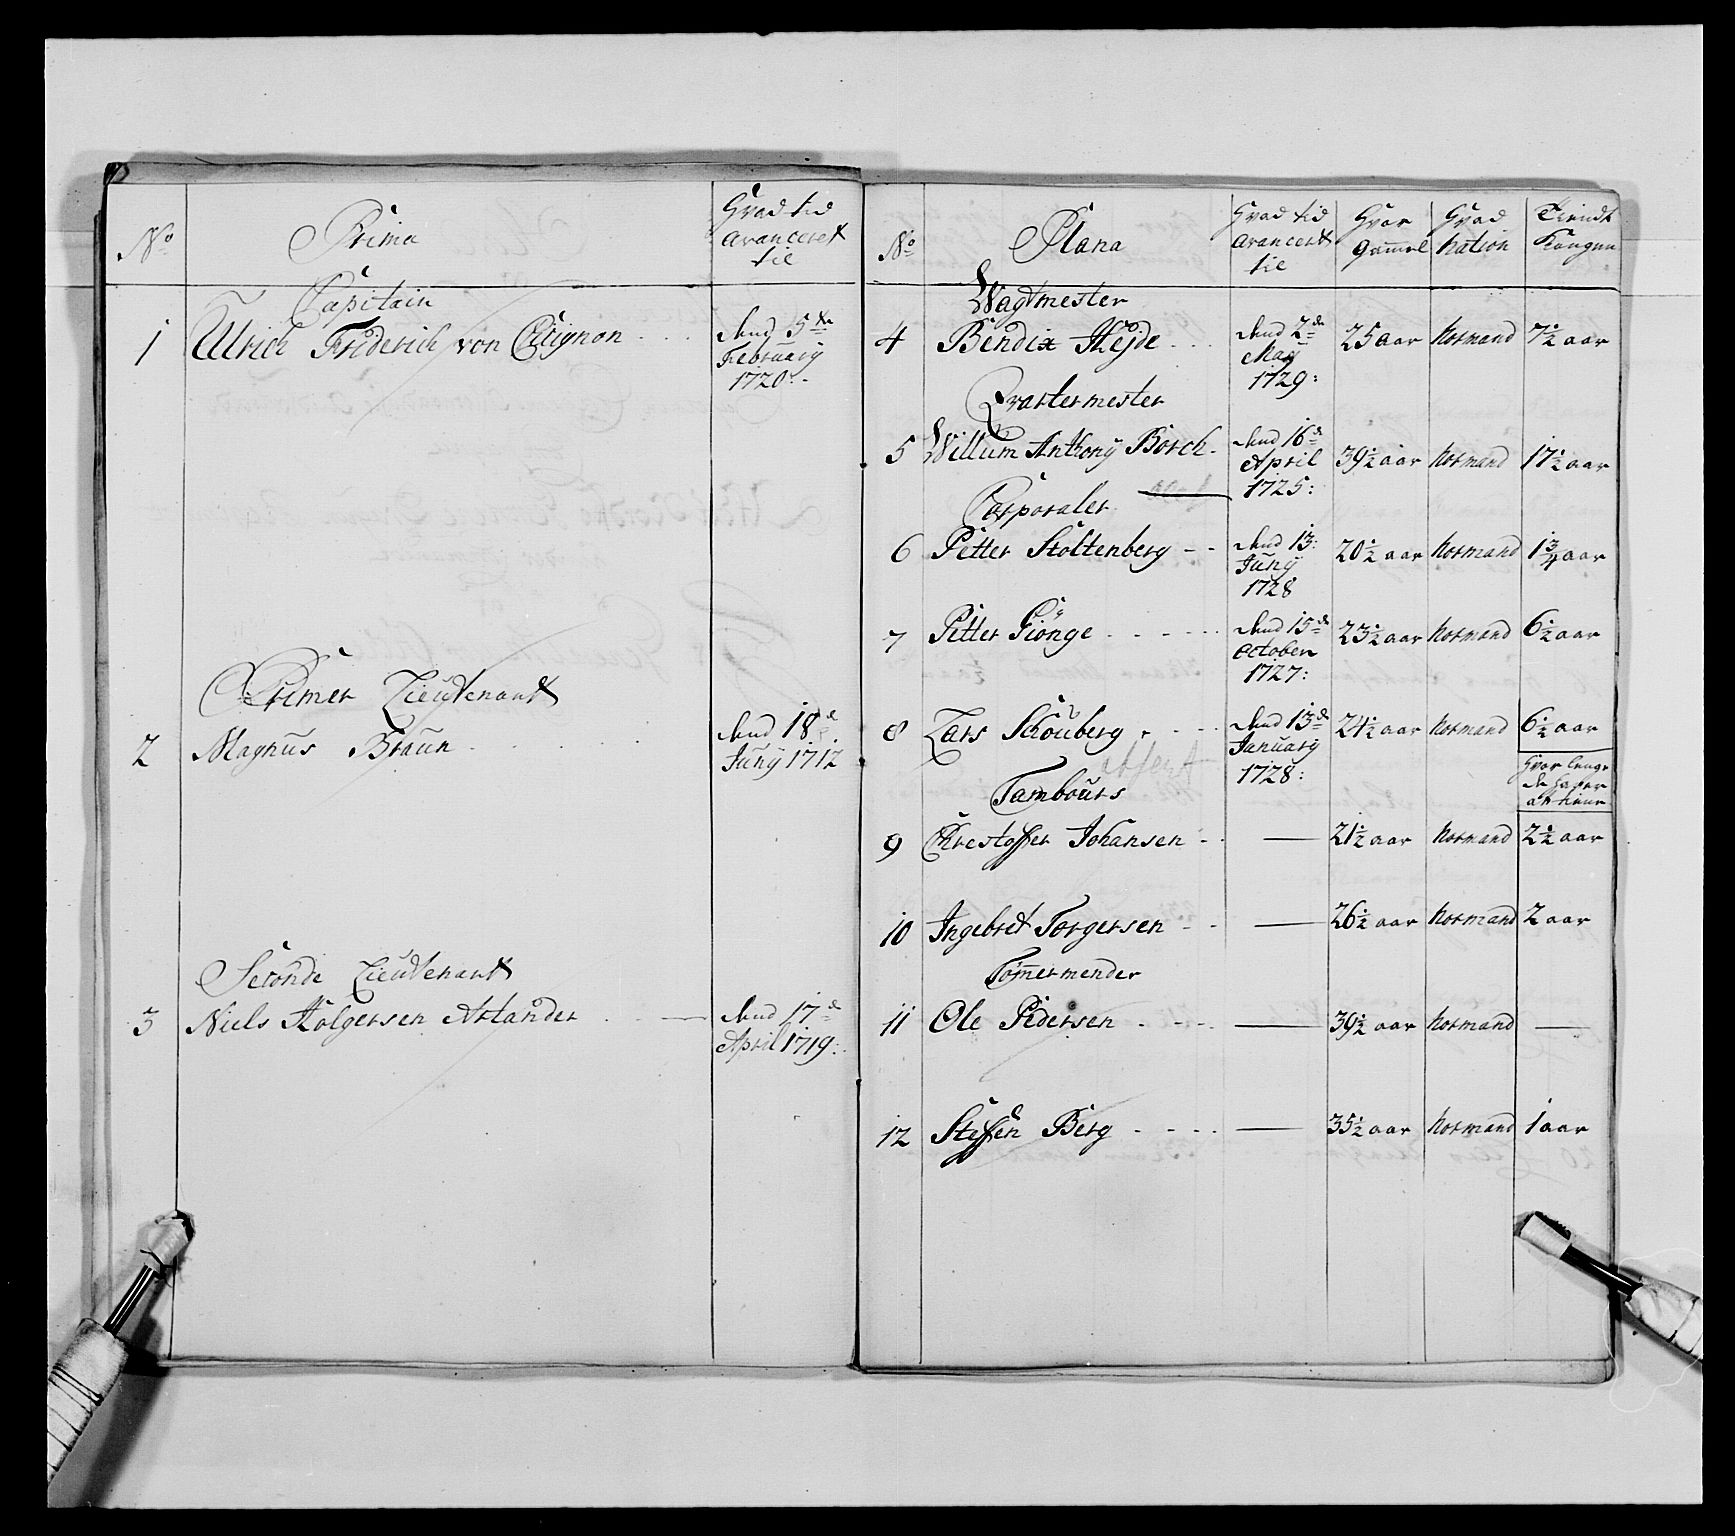 No
Prima
Hvad tid
avanceret
til
Capitain
1 Ulrich Friderich von Cicignon
dend 5te
February
1720
Primer Lieutenant
2 Magnus Braun
dend 18de
Juny 1712
Seconde Lieutenant
3 Niels Holgersen Arlander
dend 17de
April 1719
No
Plana
Hvad tid
avanceret
til
Hvor
gammel
Hvad
Nation
Tiendt
Kongen
Wagtmester
4 Bendix Hejde
dend 2de
May
1729:
25 aar Normand 7½ aar
Qvartermester
5 Willum Anthony Borch
dend 16de
April
1725:
39½ aar Normand 17½ aar
Corporaler
6 Petter Stoltenberg
dend 13:
Juny
1728
20½ aar Normand 1¾ aar
7 Petter Giönge
dend 15de
October
1727:
23½ aar Normand 6½ aar
8 Lars Schouberg
dend 13de
January
1728:
24½ aar Normand 6½ aar
absent
Hvor lenge
de haver
Tambours
9 Chrestoffer Johansen — 21½ aar Normand 2½ aar
10 Ingebret Torgersen — 26½ aar Normand 2 aar
Tømermender
11 Ole Pedersen — 39½ aar Normand —
12 Steffen Berg — 35½ aar Normand 1 aar